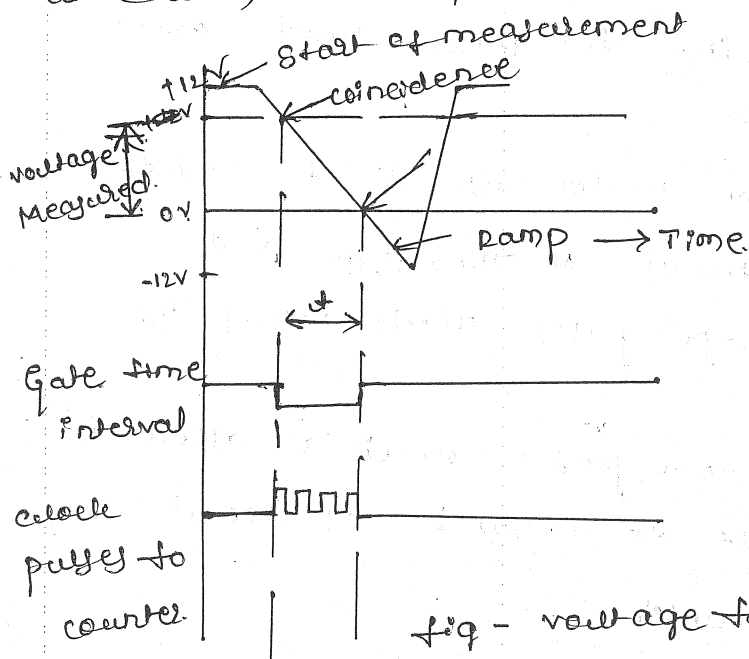 Start of measurement
+12V
coincidence
voultage
Measured.
0V
Ramp → Time
-12V
t
Gate time
interval
clock
pulses to
counter.
fig - voultage to